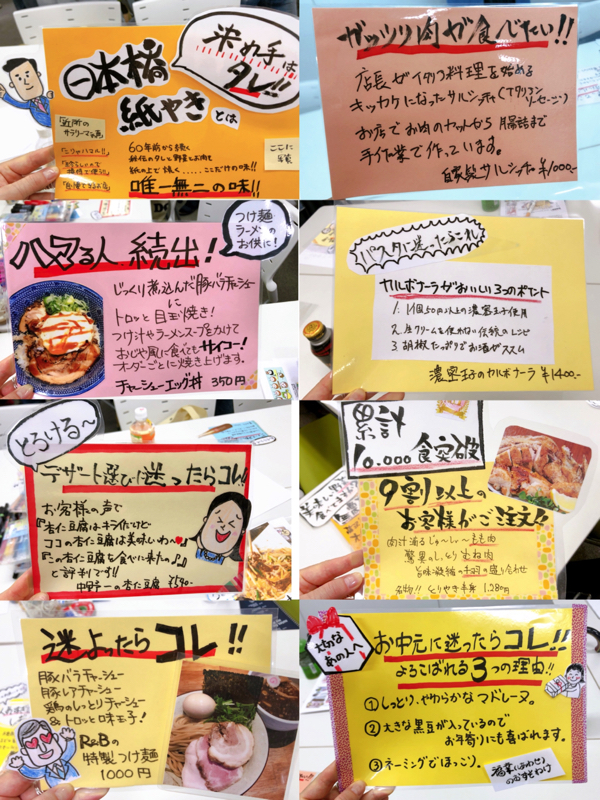 決め手は
タレ!!
日本橋
紙やき とは
近所の
サラリーマンの声
60年前から続く
秘伝のタレと野菜とお肉を
紙の上で焼く‥‥‥ここだけの味!!
唯一無二の味!!
ここに
写真
ガッツリ肉が食べたい!!
店長がイタリア料理を始める
キッカケになったサルシッチャ(イタリアンソーセージ)
お店でお肉のカットから腸詰まで
手作業で作っています。
自家製サルシッチャ ¥1000.-
ハマる人、続出!
つけ麺
ラーメンの
お供に!
じっくり煮込んだ豚バラチャーシュー
に
トロッと目玉焼き!
つけ汁やラーメンスープをかけて
おじや風に食べてもサイコー!
オーダーごとに焼き上げます。
チャーシューエッグ丼 350円
パスタに迷ったらこれ
カルボナーラがおいしい3つのポイント
1. 1個50円以上の濃密玉子使用
2. 生クリームを使わない伝統のレシピ
3. 胡椒たっぷりでお酒がススム
濃密玉子のカルボナーラ ¥1400.-
とろける〜
デザート選びに迷ったらコレ!!
お客様の声で
『杏仁豆腐はキライだけど
ココの杏仁豆腐は美味しいわ〜♥』
『この杏仁豆腐を食べに来たの♪』
と評判です!!
中野一の杏仁豆腐 ¥590-
累計
10.000食突破
9割以上の
お客様がご注文!!
肉汁滴るじゅ〜し〜もも肉
驚異のしっとりむね肉
旨味凝縮の手羽の盛り合わせ
名物!! とりやき半身 1.280円
迷ったら コレ!!
豚バラチャーシュー
豚レアチャーシュー
鶏のしっとりチャーシュー
&トロッと味玉子!
R&Bの
特製つけ麺
1000円
大切な
あの人へ
お中元に迷ったらコレ!!
よろこばれる3つの理由!!
①しっとり、やわらかなマドレーヌ。
②大きな黒豆が入っているので
お年寄りにも喜ばれます。
③ネーミングでほっこり。
福業(しあわせ)
のおすそわけ